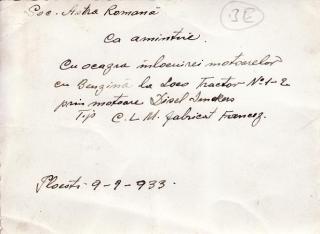 Soc. Astra Română
3E
Ca amintire.
Cu ocazia înlocuirei motoarelor
cu Benzină la Loco Tractor No 1-2
prin motoare Disel Junckers
Tip C.L.M. fabricat Francez.
Ploesti 9-9-933.